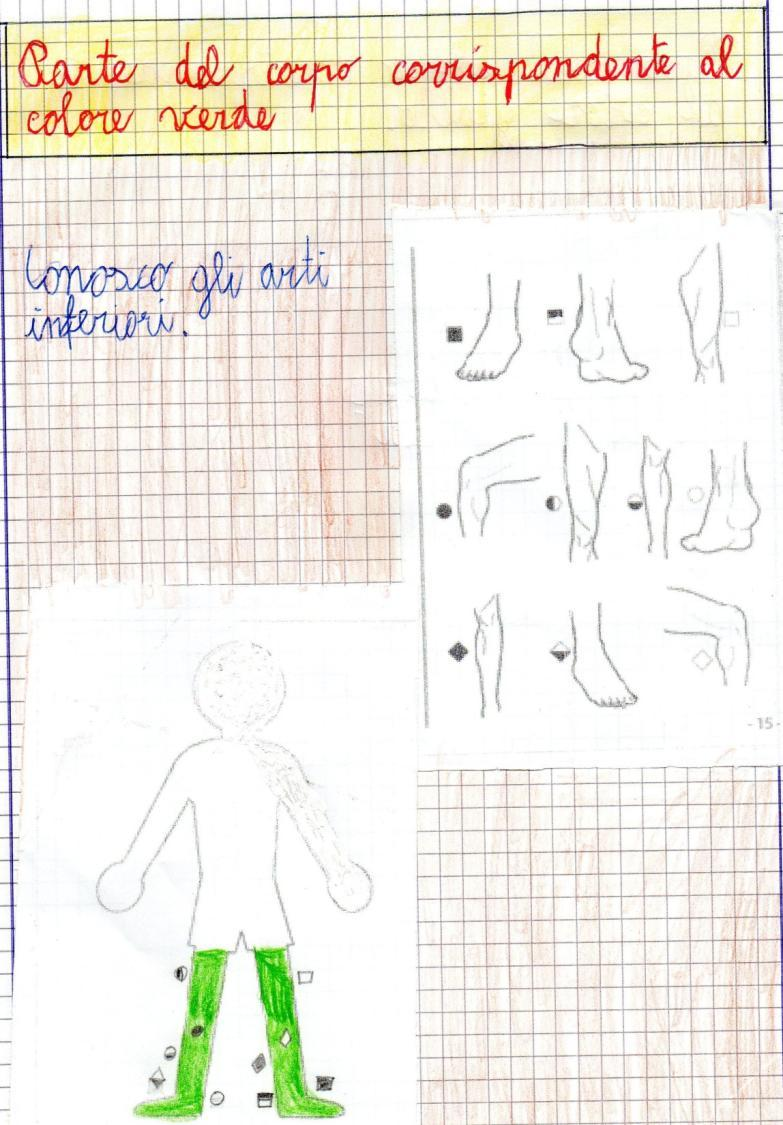 Parte del corpo corrispondente al
colore verde
Conosco gli arti
inferiori.
- 15 -